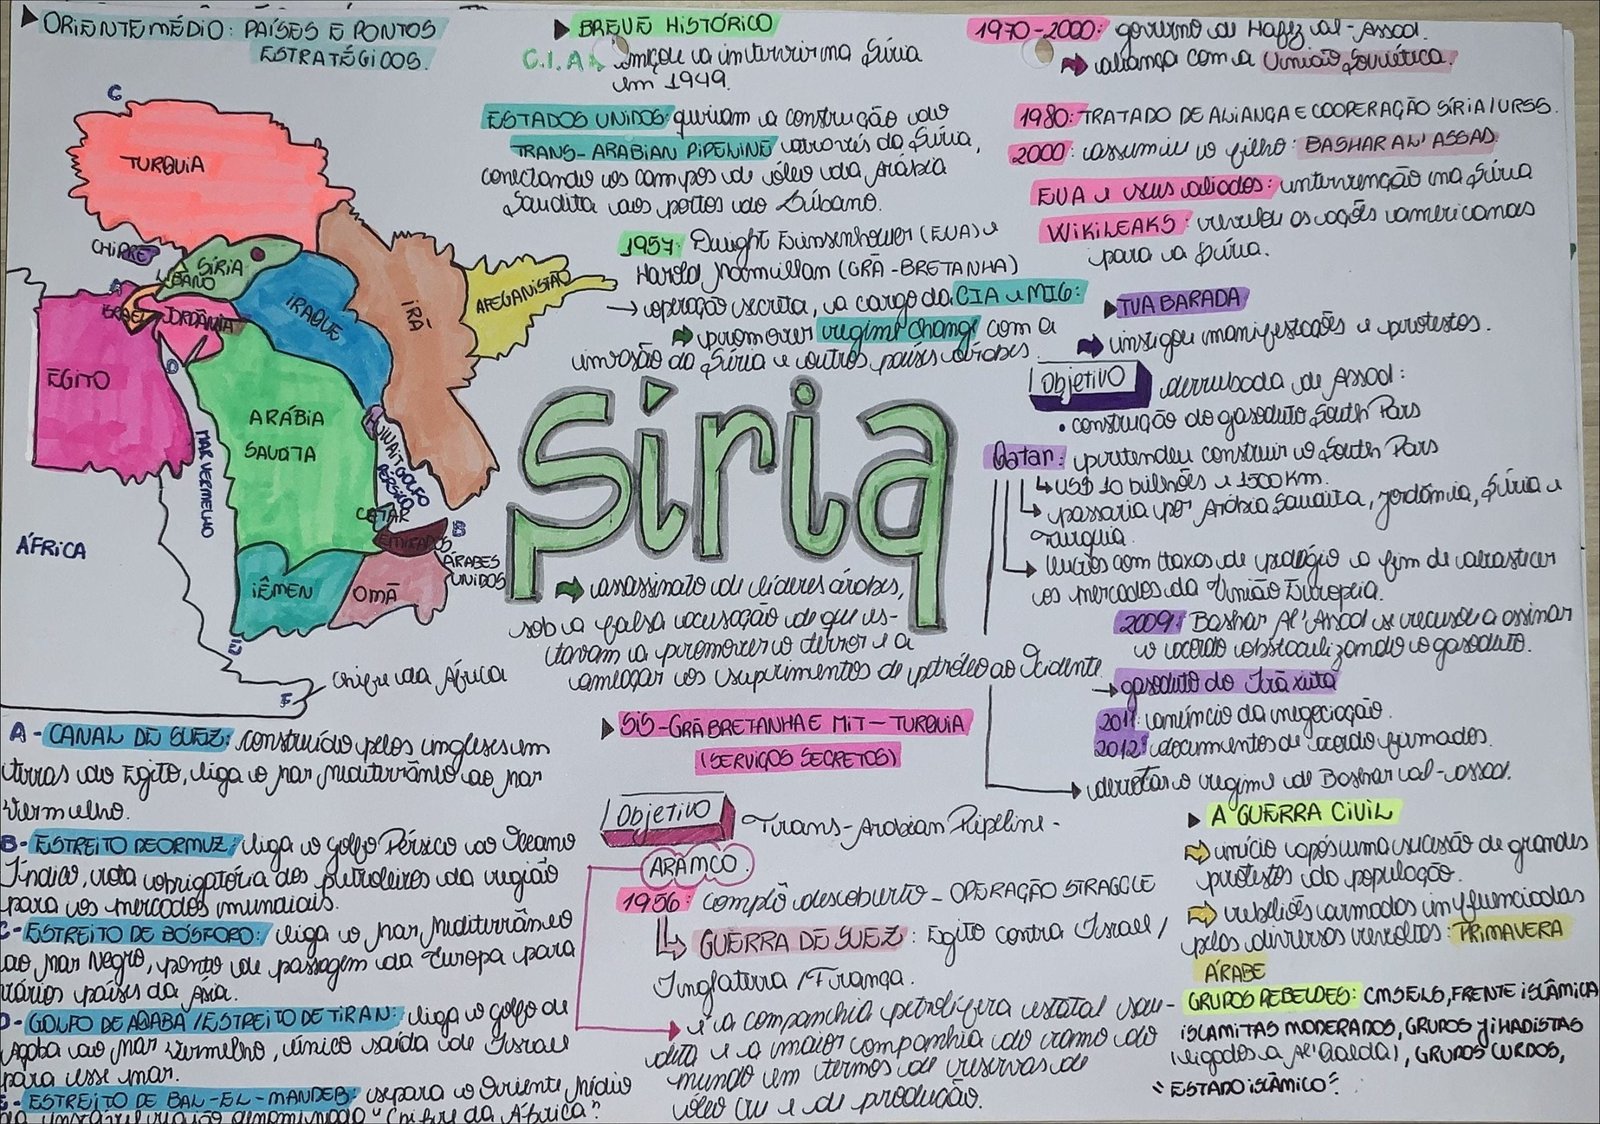 ORIENTE MÉDIO: PAÍSES E PONTOS
ESTRATÉGICOS.
C
TURQUIA
CHIPRE
SÍRIA
LÍBANO
A
ISRAEL
JORDÂNIA
IRAQUE
IRÃ
AFEGANISTÃO
EGITO
D
ARÁBIA
SAUDITA
KUWAIT
GOLFO
PÉRSICO
MAR VERMELHO
CATAR
B
EMIRADOS
ÁRABES
UNIDOS
ÁFRICA
IÊMEN
OMÃ
E
F
Chifre da África
A - CANAL DE SUEZ: construído pelos ingleses em
terras do Egito, liga o mar Mediterrâneo ao mar
Vermelho.
B - ESTREITO DE ORMUZ: liga o golfo Pérsico ao Oceano
Índico, rota obrigatória dos petroleiros da região
para os mercados mundiais.
C - ESTREITO DE BÓSFORO: liga o mar Mediterrâneo
ao Mar Negro, ponto de passagem da Europa para
vários países da Ásia.
D - GOLFO DE AQABA / ESTREITO DE TIRAN: liga o golfo de
Aqaba ao mar Vermelho, única saída de Israel
para esse mar.
E - ESTREITO DE BAL-EL-MANDEB: separa o Oriente Médio
denominado "Chifre da África".
BREVE HISTÓRICO
C.I.A. começou a intervir na Síria
em 1949.
ESTADOS UNIDOS: queriam a construção do
TRANS-ARABIAN PIPELINE através da Síria,
conectando os campos de óleo da Arábia
Saudita aos portos do Líbano.
1957: Dwight Einsenhower (EUA) e
Harold Macmillan (GRÃ-BRETANHA)
→ operação secreta, a cargo da CIA e MI6:
promover regime change com a
invasão da Síria e outros países árabes.
Síria
assassinato de líderes árabes,
sob a falsa acusação de que es-
tavam a promover o terror e a
ameaçar os suprimentos de petróleo ao Ocidente
SIS - GRÃ BRETANHA E MIT - TURQUIA
(SERVIÇOS SECRETOS)
Objetivo
Trans-Arabian Pipeline -
ARAMCO.
1956: Complô descoberto - OPERAÇÃO STRAGGLE
GUERRA DE SUEZ: Egito contra Israel /
Inglaterra / França.
é a companhia petrolífera estatal sau-
dita e a maior companhia do ramo do
mundo em termos de reservas de
óleo cru e de produção.
1970-2000: governo de Hafez al-Assad.
aliança com a União Soviética.
1980: TRATADO DE ALIANÇA E COOPERAÇÃO SÍRIA / URSS.
2000: assumiu o filho: BASHAR AL' ASSAD
EUA e seus aliados: intervenção na Síria
WIKILEAKS: revelou as ações americanas
para a Síria.
TVA BARADA
instigou manifestações e protestos.
Objetivo
derrubada de Assad:
• construção do gasoduto South Pars
Qatar: pretendeu construir o South Pars
US$ 10 bilhões e 1500Km.
passaria por Arábia Saudita, Jordânia, Síria e
Turquia.
lucros com taxas de pedágio a fim de abastecer
os mercados da União Europeia.
2009: Bashar Al'Assad se recusou a assinar
o acordo obstaculizando o gasoduto.
gasoduto do Irã xiita
2011: comêncio da negociação.
2012: documentos de acordo firmados.
derrotar o regime de Bashar al-assad.
A GUERRA CIVIL
início após uma sucessão de grandes
protestos da população.
rebeliões armadas influenciadas
pelas diversas revoltas: PRIMAVERA
ÁRABE
GRUPOS REBELDES: CMSELS, FRENTE ISLÂMICA
ISLAMITAS MODERADOS, GRUPOS JIHADISTAS
(ligados a Al'Qaeda), GRUPOS CURDOS,
"ESTADO ISLÂMICO".